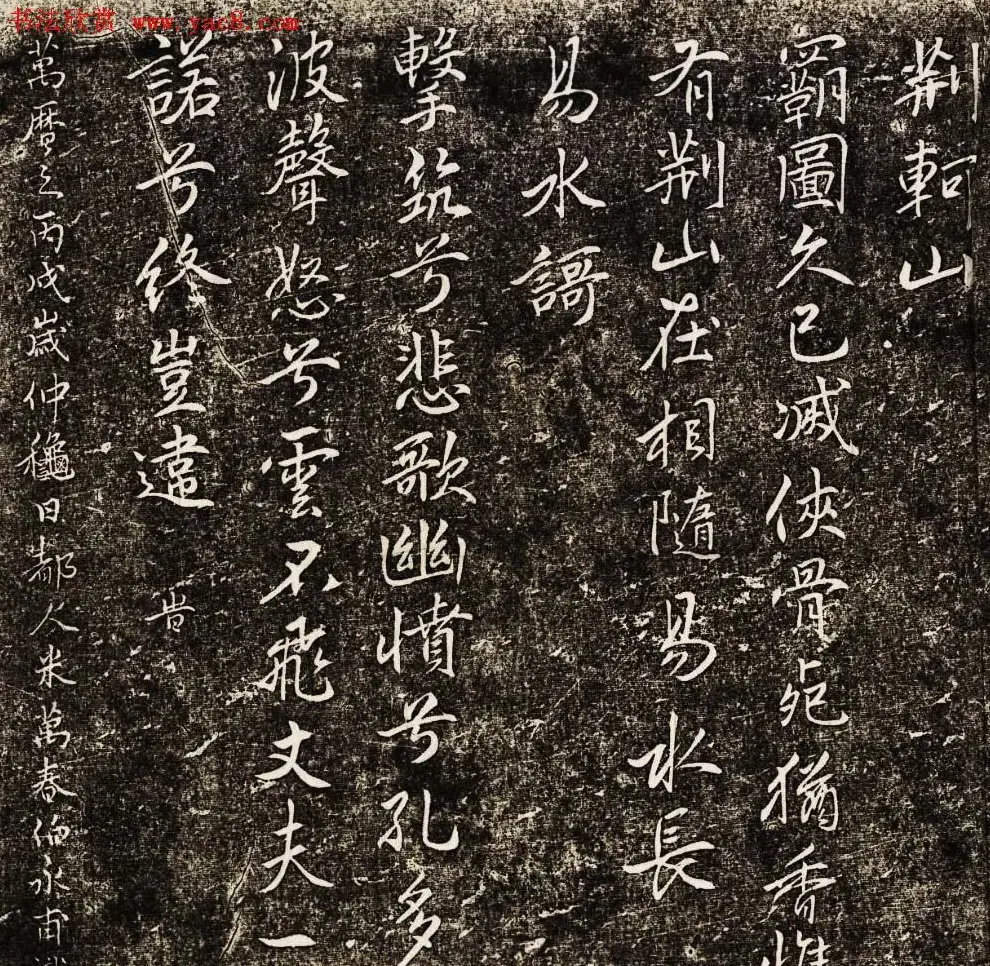 书法欣赏 www.yac8.com
荆軻山
霸圖久已滅俠骨死猶香惟
有荆山在相隨易水長
易水謌
擊筑兮悲歌幽憤兮孔多
波聲怒兮雲不飛丈夫一
諾兮終豈違
萬曆之丙戌歲仲龝日都人米萬春伯永甫